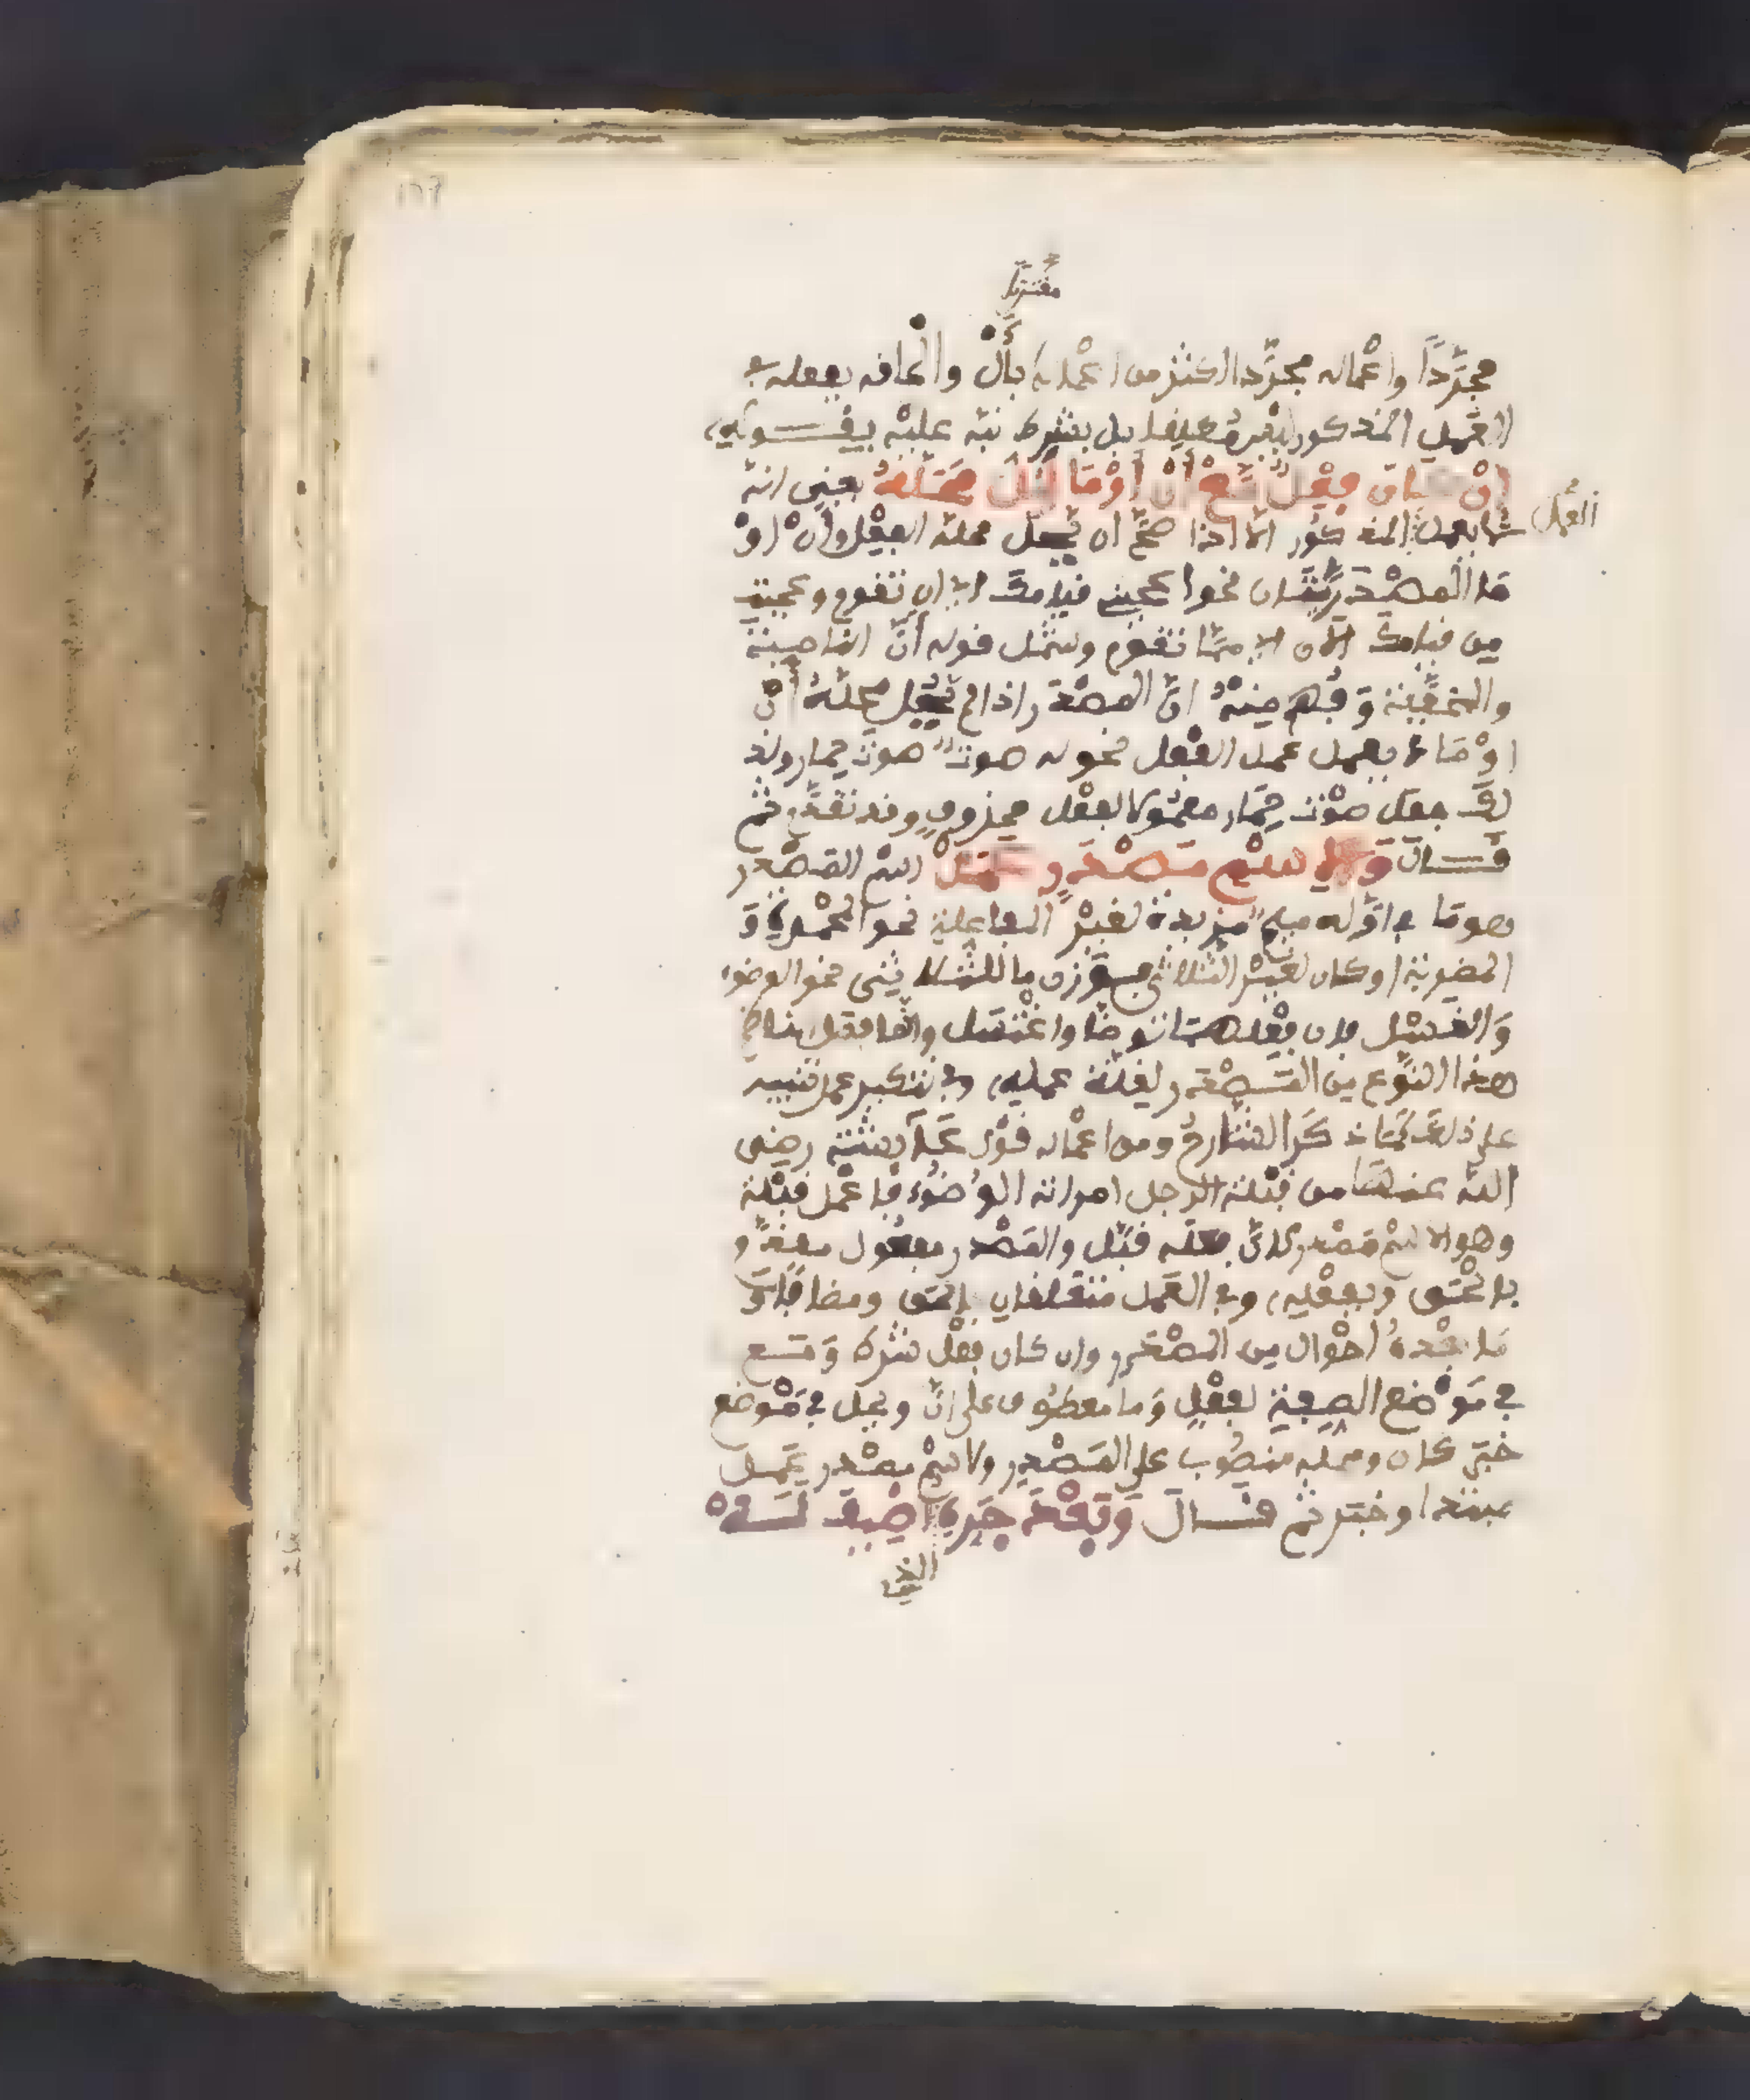 مقترنا
مجرَّداً واعْماله مجرَّد اكثر من اعْماله بأَلْ والْحافه بفعله في
العَمل المذكور ليْس مُطلفا بل بشرط نبّه عليْه بفـــوله
إنْ كان فِعْلٌ مَعَ أنْ أوْ مَا يَحُلّ مَحَلَّهُ يعني انه
العمل
لا يعمل المذكور الا اذا صحَّ ان يحل محله الفِعْل وأنْ اوْ
مَا المصْدريّتان نحوا عجبني فيامك اي ان تفوم وعجبت
من فيامك الان اي ممَّا تفوم وشمل فوله أنْ الناصبة
والمخفَّفة وَفُهم مِنهُ انَّ المصْدر اذا لم يحُل محلّهُ أنْ
اوْ مَا لا يعمل عمل الفعْل نحو له صوتٌ صوت حمار ولذ
لك جعل صوْت حِمَار معمُولا لفعْل محذوف وفد تفدَّم ثم
فـــال وَلاِسْمِ مَصْدَرٍ عَمَلْ اسْم المَصْدر
هو مَا في اوَّله ميم مزيدة لغيْر المفاعلة نحو المحْمدة وَ
المضربة او كان لغيْر الثلاثي بوَزن ما للثلاثي نحو الوضوء
وَالغسْل فإن فِعْلهما توضّا واغْتسَل وانّما فصَل
هذا النوَّع من المَصْدر لفلّة عمله، وفي تنكير عمل تنبيه
على ذلك كمَا ذكَر الشارحُ ومن اعْماله فوْل عَائشة رضي
الله عنها من فبْلة الرجل امراته الوُضوُء فاعْمل فبْلة
وهو اسْم مَصْدر لانّ فعله فبَّل والمَصْدر مفعُول مفدَّم و
بالْحَق وبفعْله، وفي العَمل متعلفان بالحق ومضافا وَ
مَا بعْدهُ احْوال من المصْدر وان كان فِعْل شرط وَمَـــع
في مَوْضع الصِفة لفعْل وَمَا معطوُف على انْ ويحل في مَوْضع
خبَر كان ومحله منصُوب على المَصْدر ولاسْم مصْدر عَمـــل
مبتدا وخبَر ثم فـــال وَبَعْدَ جَرِّهِ الذي أضِيفَ لَـــهْ